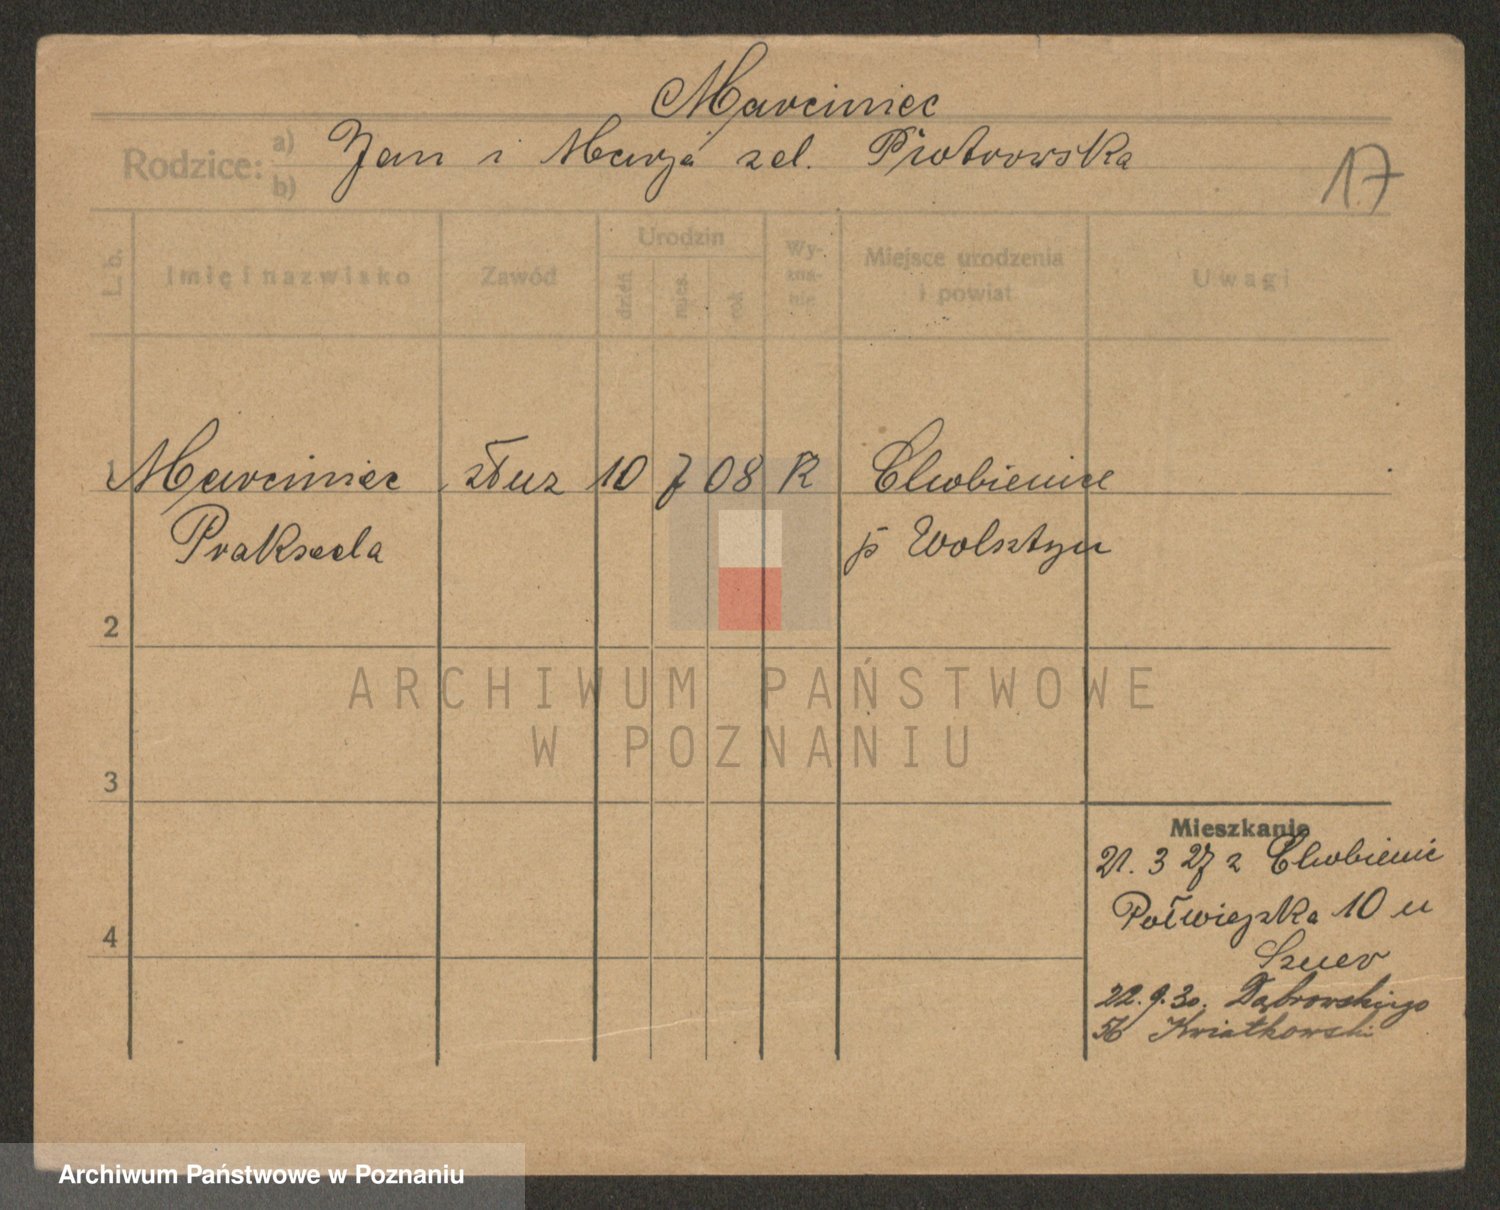 Marciniec
Rodzice: a) b) Jan i Marja zd. Piotrowska
17
L. b. Imię i nazwisko Zawód Urodzin dzień mies. rok Wy-zna-nie Miejsce urodzenia i powiat Uwagi
1 Marciniec służ 10 7 08 R Chobienice
Prakseda p Wolsztyn
2
3
4
Mieszkanie
21. 3 27 z Chobienic
Półwiejska 10 u
Szuer
22. 9. 30. Dąbrowskiego
56 Kwiatkowski
ARCHIWUM PAŃSTWOWE
W POZNANIU
Archiwum Państwowe w Poznaniu